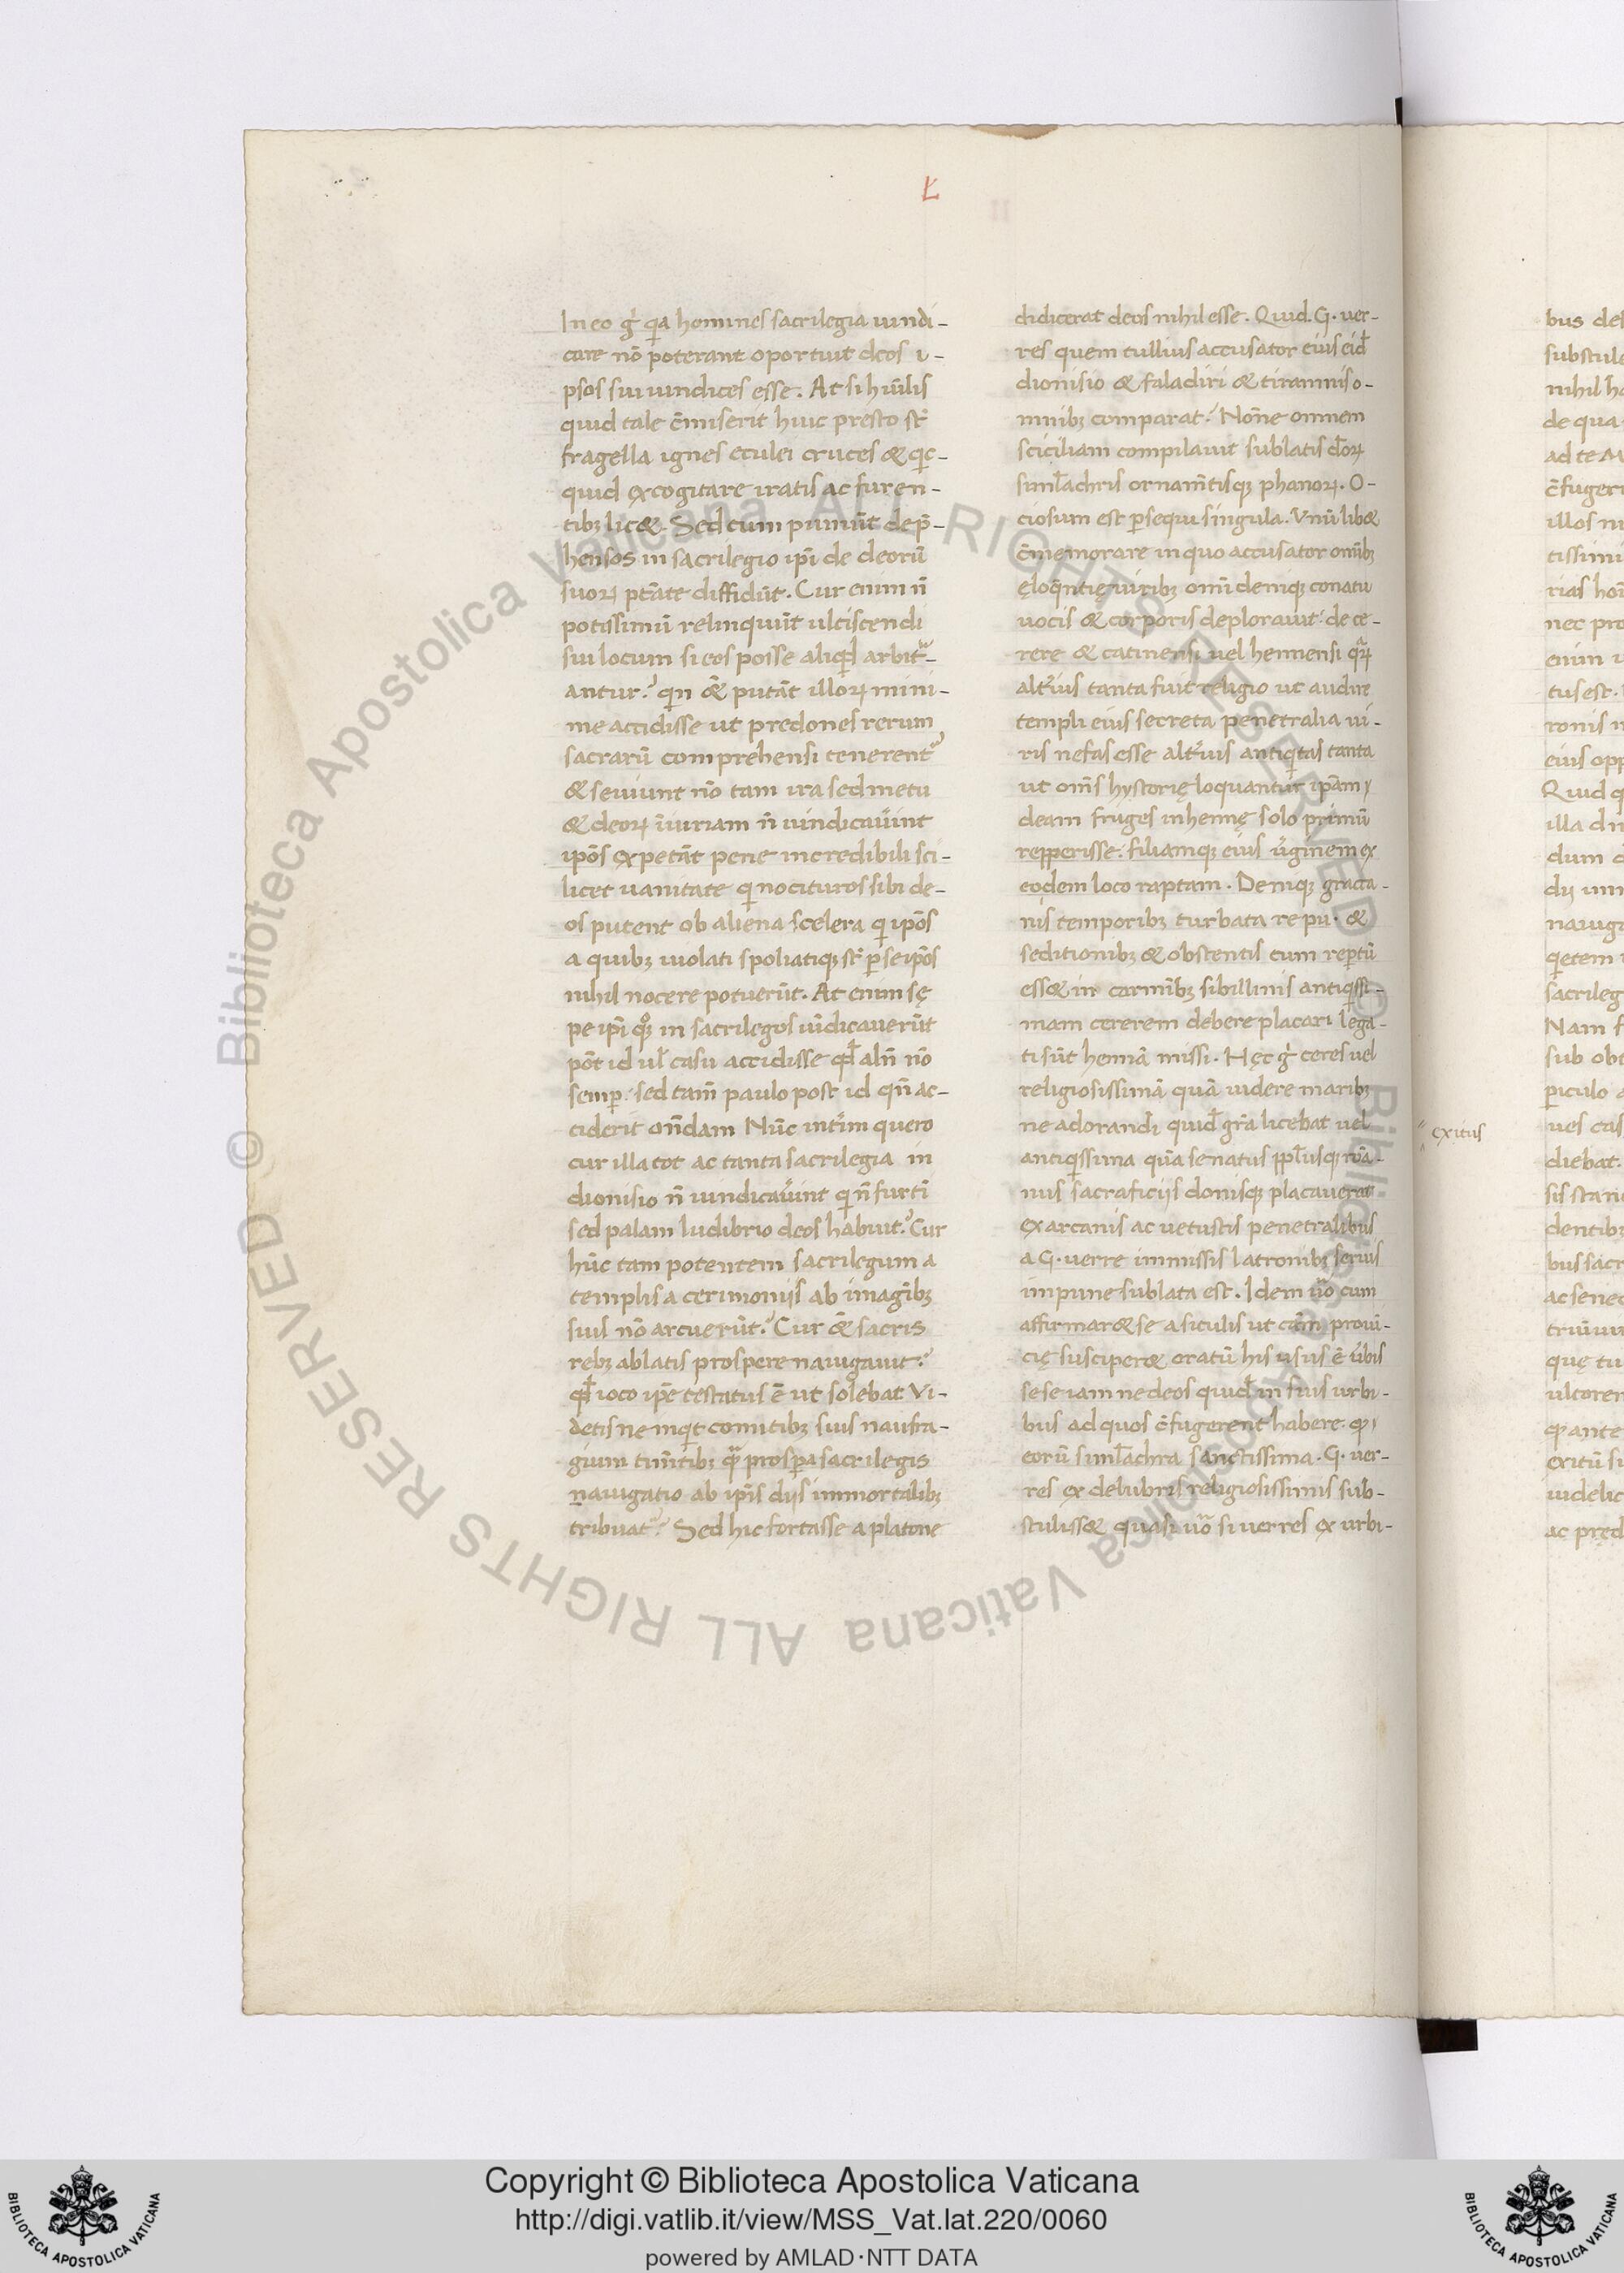 Ł
In eo gͥ qͥa homines sacrilegia uindi-
care nō poterant oportuit deos i-
psos sui uindices esse. At si hūilis
quid tale c̄miserit huic presto st̄
fragella ignes eculei cruces & qͥc-
quid excogitare iratis ac furen-
tibꝫ lic&. Sed cum puniūt dep̄-
hensos in sacrilegio ip̄i de deorū
suoꝝ ptāte diffidūt. Cur enim n̄
potissimū relinquūt ulciscendi
sui locum si eos posse aliqd̄ arbitᵃ-
antur? qͥn &̄ putāt illoꝝ mini-
me accidisse ut predones rerum
sacrarū comprehensi tenerent᷑
& seuiunt nō tam ira sed metu
& deoꝝ īiuriam n̄ uindicau̇int
ip̄os expetāt pene incredibili sci-
licet uanitate qͥ nocituros sibi de-
os putent ob aliena scelera qͥ ip̄os
a quibꝫ uiolati spoliatiqꝫ st̄ ꝑ se ip̄os
nihil nocere potuerūt. At enim sę
pe ip̄i qꝫ in sacrilegos uīdicauerūt
pōt id ul̄ casu accidisse qd̄ aln̄ nō
semꝑ: sed tam̄ paulo post id qn̄ ac-
ciderit on̄dam Nūc intīm quero
cur illa tot ac tanta sacrilegia in
dionisio n̄ uindicau̇int qͥ n̄ furtī
sed palam ludibrio deos habuit? Cur
hūc tam potentem sacrilegum a
templis a cerimoniis ab imagībꝫ
suis nō arcuerūt? Cur &̄ sacris
rebꝫ ablatis prospere nauigauit?
qd̄ ioco ip̄e testatus ē ut solebat Vi-
detis ne inqͥt comitibꝫ suis naufra-
gium tim̄tibꝫ qᵃ prospa sacrilegis
nauigatio ab ip̄is diis immortalibꝫ
tribuat᷑? Sed hic fortasse a platone
didicerat deos nihil esse. Quid. G. uer-
res quem tullius accusator eius eid̄
dionisio & faladiri & tirannis o-
mnibꝫ comparat? Nōne omnem
sciciliam compilauit sublatis d̄oꝝ
siml̄achris ornam̄tisqꝫ phanoꝝ. O-
ciosum est ꝑsequi singula. Vnū lib&
c̄memorare in quo accusator omībꝫ
ęloqn̄tię uiribꝫ omī deniqꝫ conatu
uocis & corporis deplorauit: de ce-
rere & catinensi uel hennensi qᵃꝝ
alt̄ius tanta fuit religio ut audire
templi eius secreta penetralia ui-
ris nefas esse alt̄ius antiqͥtas tanta
ut om̄s hystorię loquantur ip̄am
deam fruges in hennę solo primū
repperisse: filiamqꝫ eius u̇ginem ex
eodem loco raptam. Deniqꝫ gracca-
nis temporibꝫ turbata re pu. &
seditionibꝫ & obscentis cum reptū
ess& in carmībꝫ sibillinis antiqͥssi-
mam cererem debere placari lega-
ti sūt hennā missi. Hęc gͥ ceres uel
religiosissimā quā uidere maribꝫ
ne adorandi quid̄ gr̄a licebat uel
antiqͥssima quā senatus ppl̄usqꝫ rōa-
nus sacraficiis donisqꝫ placauerat
ex arcanis ac uetustis penetralibus
a G. uerre immissis latronibꝫ seruis
impune sublata est. Idem uō cum
affirmar& se a siculis ut cām prouī-
cię susciper& oratū his usus ē u̇bis
sese iam ne deos quid̄ in suis urbi-
bus ad quos c̄fugerent habere. ꝙ
eorū siml̄achra sanctissima. G. uer-
res ex delubris religiosissimis sub-
stuliss& quasi uō si uerres ex urbi-
exitus
bus de
nihil
de qua
ad te
c̄fuger
illos
tissimi
rias
nec pro
enim
tus est.
ronis
eius opp
Quid
illa
dum
dii
nauig
qͥetem
sacrileg
Nam
sub
ꝑiculo
ues cas
diebat.
dentibꝫ
ac
quę
ultorem
ꝙ ante
uidelic
© Biblioteca Apostolica Vaticana ALL RIGHTS RESERVED © Biblioteca Apostolica Vaticana ALL RIGHTS RESERVED
BIBLIOTECA APOSTOLICA VATICANA
Copyright © Biblioteca Apostolica Vaticana
http://digi.vatlib.it/view/MSS_Vat.lat.220/0060
powered by AMLAD·NTT DATA
BIBLIOTECA APOSTOLICA VATICANA